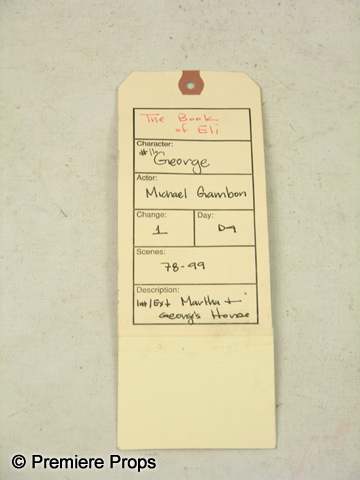 The Book
of Eli
Character:
#16
George
Actor:
Michael Gambon
Change:
Day:
1
D-9
Scenes:
78-99
Description:
Int/Ext Martha +
George's House
© Premiere Props